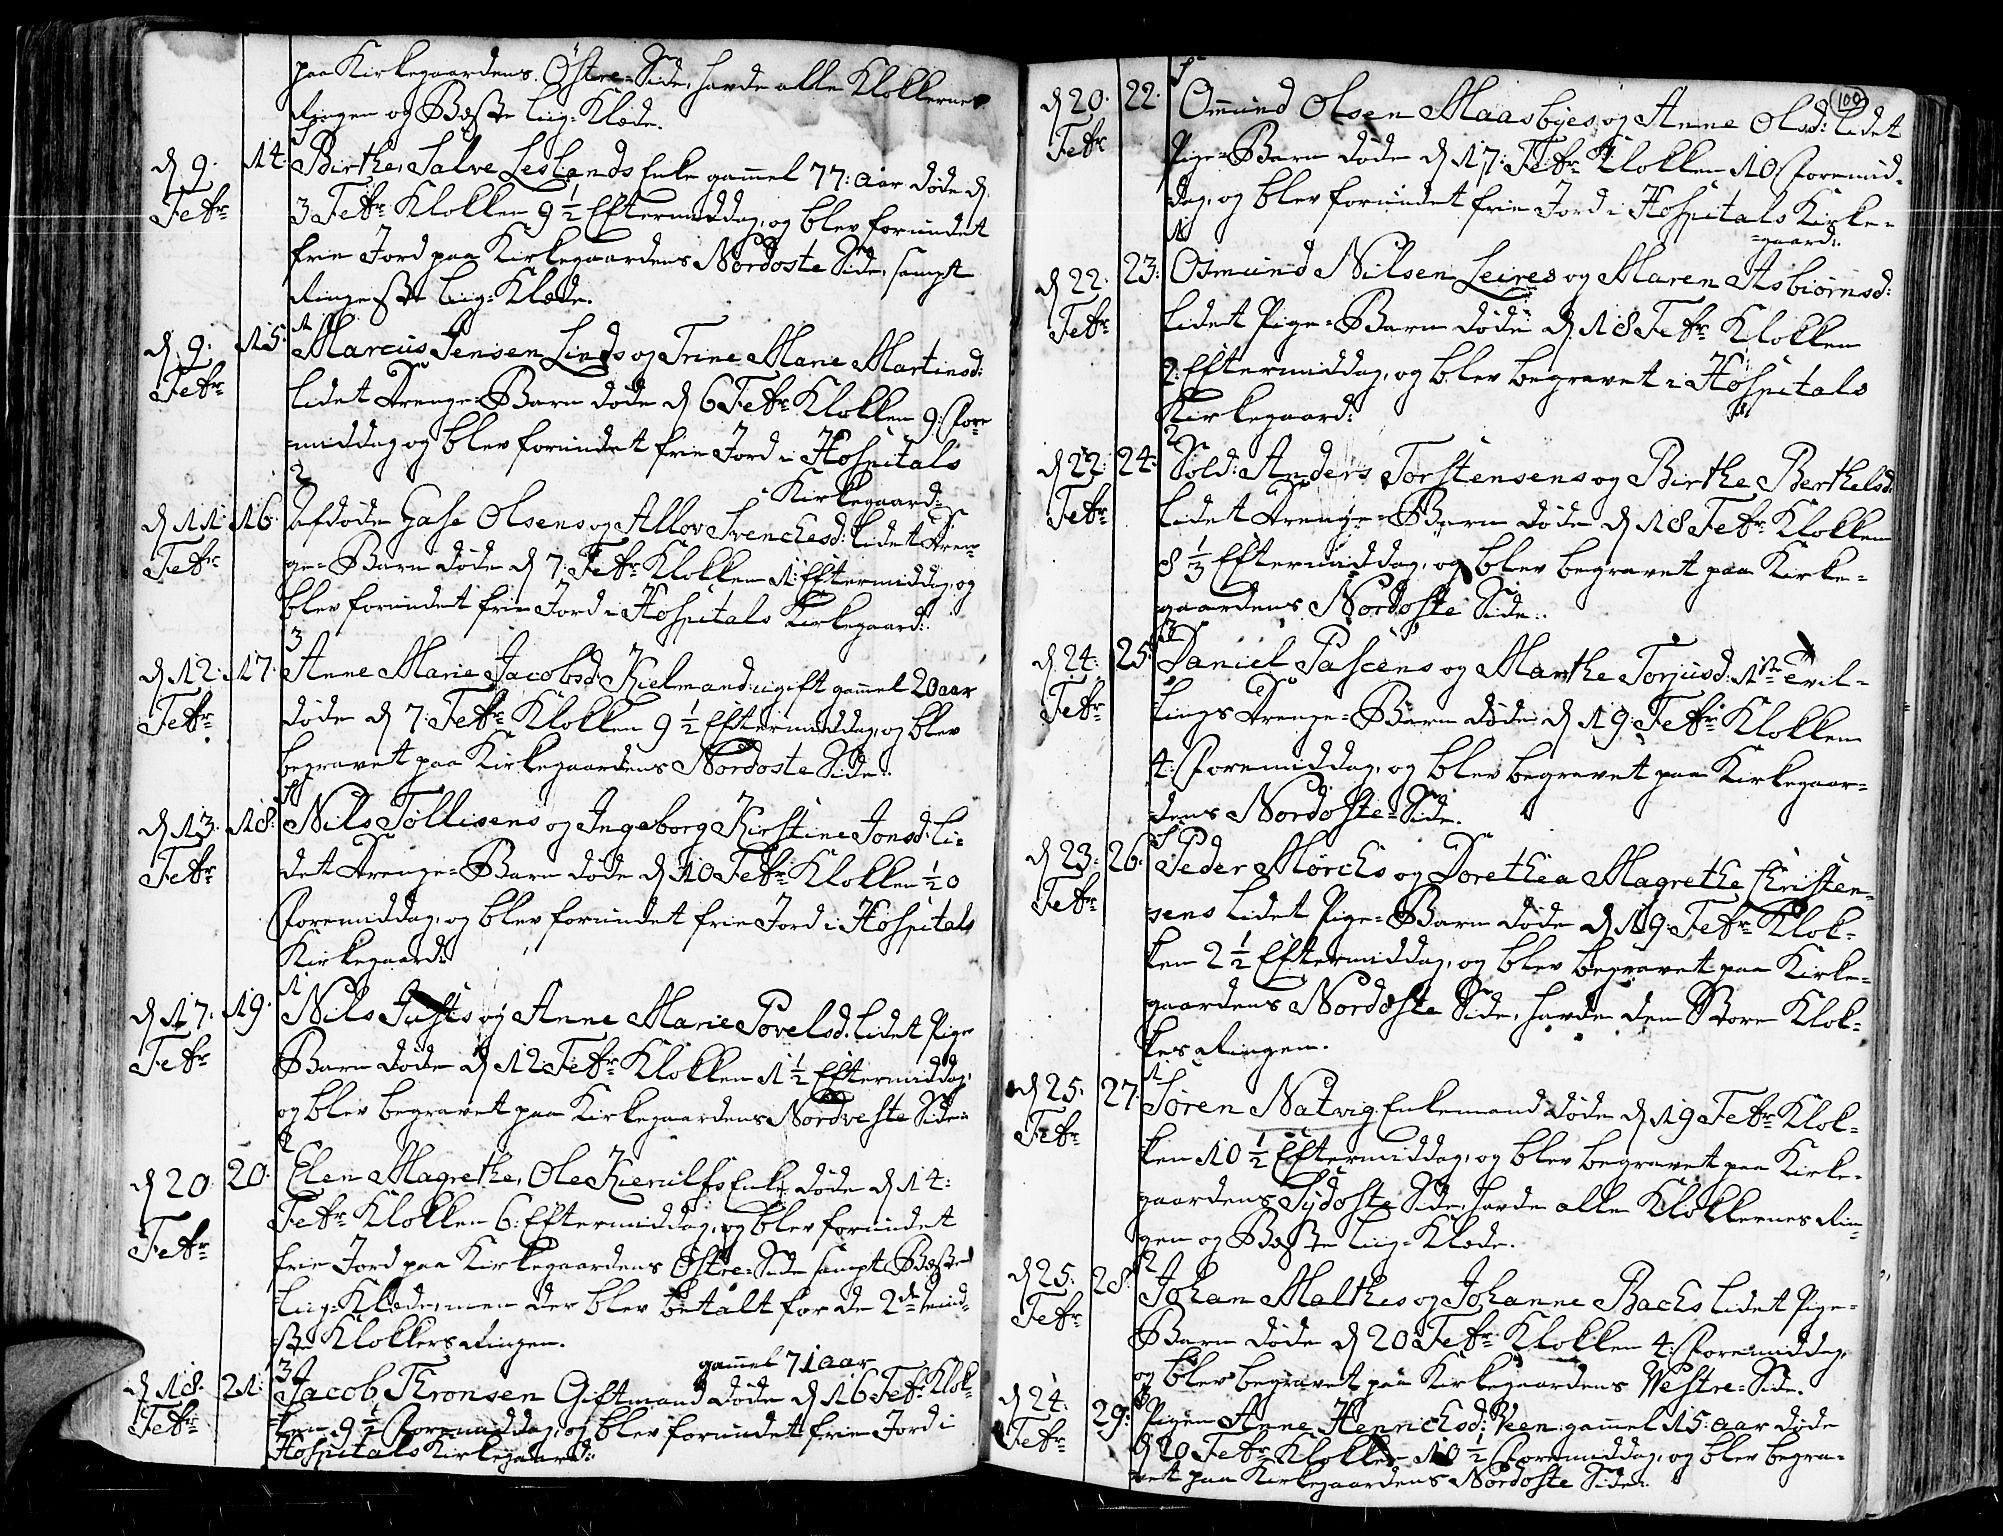 paa Kirkegaardens Östre-Side, havde alle Klokkernes
Ringen og Beste Liig-Klæde.
d 9. 14. Birthe, Salve Leslands Enke gammel 77: Aar døde d
Febr 3 Febr Klokken 9 1/2 Eftermiddag, og blev forundet
frie Jord paa Kirkegaardens Nordoste Side, sampt
Ringeste Liig-Klæde.
1
d 9. 15. Marcus Jensen Linds og Trine Marie Martinsd:
Febr lidet Drenge-Barn døde d 6 Febr Klokken 9: For-
middag og blev forundet frie Jord i Hospitals
Kirkegaard:
2
d 11 16. Afdøde Gahe Olsens og Allov Svenchesd: lidet Dren-
Febr ge-Barn døde d 7: Febr Klokken 1: Eftermiddag, og
blev forundet frie Jord i Hospitals Kirkegaard:
3
d 12. 17. Anne Marie Jacobsd: Kielmand: ugift gammel 20 aar
Febr døde d 7: Febr Klokken 9 1/2 Eftermiddag, og blev
begravet paa Kirkegaardens Nordoste Side.
d 13. 18. Nils Tollisens og Ingeborg Kirstine Jonsd: li-
Febr det Drenge-Barn døde d 10 Febr Klokken 1/2 0
Foremiddag, og blev forundet frie Jord i Hospitals
Kirkegaard:
1
d 17. 19. Nils Justs og Anne Marie Povelsd: lidet Pige
Febr Barn døde d 12: Febr Klokken 1 1/2 Eftermiddag,
og blev begravet paa Kirkegaardens Nordveste Side:
2
d 20 20. Elen Magrethe, Ole Kierulfs Enke døde d 14:
Febr Febr Klokken 6: Eftermiddag, og blev forundet
frie Jord paa Kirkegaardens Östre-Side sampt Beste
Liig-Klæde, men der blev betalt for de 2de mind-
ste Klokkers Ringen.
3 gammel 71 aar
d 18. 21. Jacob Thronsen Giftmand døde d 16 Febr Klok-
Febr ken 9 1/2 Foremiddag, og blev forundet frie Jord i
Hospitals Kirkegaard:
100
d 20. 22. Omund Olsen Maasbyes og Anne Olsd: lidet
Febr Pige-Barn døde d 17: Febr Klokken 10 Foremid-
dag, og blev forundet frie Jord i Hospitals Kirke-
gaard:
1
d 22. 23: Osmund Nilsen Leires og Maren Asbiørnsd:
Febr lidet Pige-Barn døde d 18 Febr Klokken
2: Eftermiddag, og blev begravet i Hospitals
Kirkegaard:
2
d 22: 24: Sold: Anders Torstensens og Birthe Berthelsd:
Febr lidet Drenge-Barn døde d 18 Febr Klokken
8 1/3 Eftermiddag, og blev begravet paa Kirke-
gaardens Nordoste Side.
d 24: 25: Daniel Pascens og Marthe Torjusd: 1ste Tvil-
Febr lings Drenge-Barn døde d 19 Febr Klokken
4: Foremiddag, og blev begravet paa Kirkegaar-
dens Nordoste-Side.
d 23: 26. Peder Mörchs og Dorethea Magrethe Christen-
Febr sens lidet Pige-Barn døde d 19. Febr Klok-
ken 2 1/2 Eftermiddag, og blev begravet paa Kirke-
gaardens Nordoste Side, havde den Store Klok-
kes Ringen.
1
d 25. 27. Sören Natvig Enkemand døde d 19 Febr Klok-
Febr ken 10 1/2 Eftermiddag, og blev begravet paa Kirke-
gaardens Sydoste Side, havde alle Klokkernes Rin-
gen og Beste Liig-Klæde.
2
d 25. 28. Johan Malthes og Johanne Bachs lidet Pige-
Febr Barn døde d 20 Febr Klokken 4: Foremiddag,
og blev begravet paa Kirkegaardens Westre-Side.
d 24. 29: Pigen Anne Henrichsd: Veen: gammel 15: aar døde
Febr d 20 Febr Klokken 10 1/2 Foremiddag, og blev begra-
vet paa Kirkegaardens Nordoste Side.